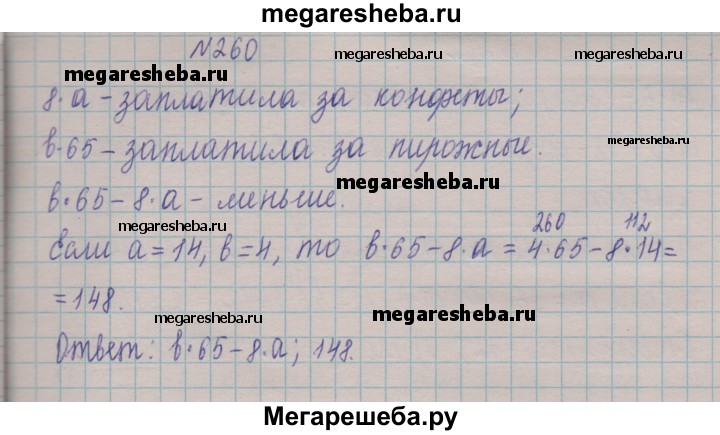 megaresheba.ru
№260
megaresheba.ru
megaresheba.ru
megaresheba.ru
8·а – заплатила за конфеты;
в·65 – заплатила за пирожные.
megaresheba.ru
megaresheba.ru
в·65 – 8·а – меньше.
megaresheba.ru
260 112
Если а = 14, в = 4, то в·65 – 8·а = 4·65 – 8·14 =
= 148.
megaresheba.ru
megaresheba.ru
Ответ: в·65 – 8·а; 148.
Мегарешеба.ру